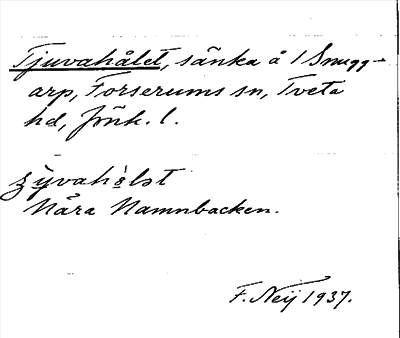 Tjuvahålet, sänka å 1 Snugg-
arp, Forserums sn, Tveta
hd, Jönk. l.
Nära Namnbacken.
F. Neij 1937.